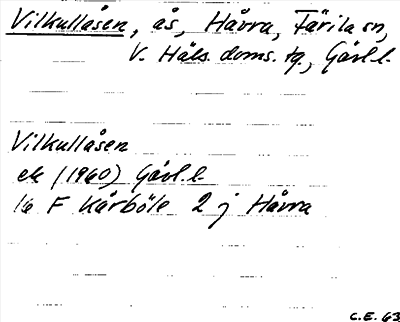 Vilkullåsen, ås, Håvra, Färila sn,
V. Häls. doms. tg, Gävl.l.
Vilkullåsen
ek (1960) Gävl.l.
16 F Kårböle 2 j Håvra
C.E. 63